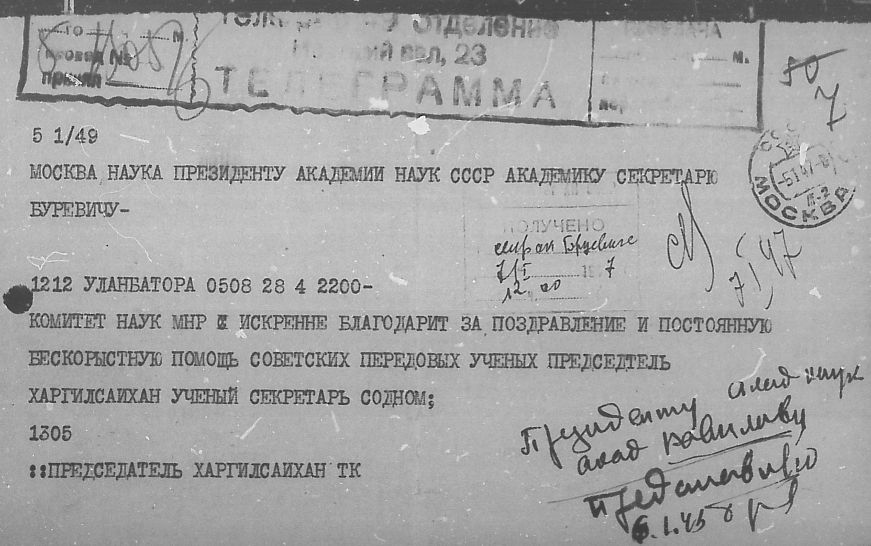 ОТДЕЛЕНИЕ
вал, 23
ТЕЛЕГРАММА
м.
м.
50
7
5 1/49
МОСКВА НАУКА ПРЕЗИДЕНТУ АКАДЕМИИ НАУК СССР АКАДЕМИКУ СЕКРЕТАРЮ
БУРЕВИЧУ-
МОСКВА
ПОЛУЧЕНО
12.00
1212 УЛАНБАТОРА 0508 28 4 2200-
КОМИТЕТ НАУК МНР И ИСКРЕННЕ БЛАГОДАРИТ ЗА ПОЗДРАВЛЕНИЕ И ПОСТОЯННУЮ
БЕСКОРЫСТНУЮ ПОМОЩЬ СОВЕТСКИХ ПЕРЕДОВЫХ УЧЕНЫХ ПРЕДСЕДТЕЛЬ
ХАРГИЛСАИХАН УЧЕНЫЙ СЕКРЕТАРЬ СОДНОМ;
1305
::ПРЕДСЕДАТЕЛЬ ХАРГИЛСАИХАН ТК
Президенту акад наук
акад Вавилову